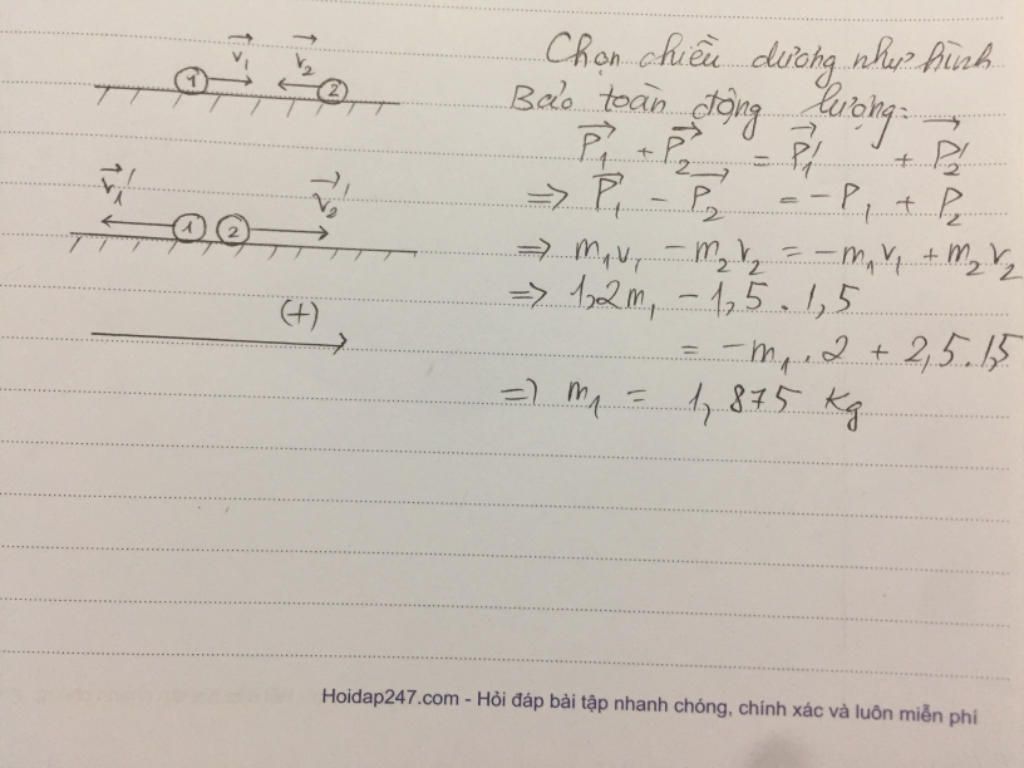 v₁ v₂
1 2
v₁' v₂'
1 2
(+)
Chọn chiều dương như hình
Bảo toàn động lượng:
P₁ + P₂ = P₁' + P₂'
=> P₁ - P₂ = -P₁ + P₂
=> m₁v₁ - m₂v₂ = -m₁v₁ + m₂v₂
=> 1,2m₁ - 1,5.1,5
= -m₁.2 + 2,5.1,5
=> m₁ = 1,875 kg
Hoidap247.com - Hỏi đáp bài tập nhanh chóng, chính xác và luôn miễn phí